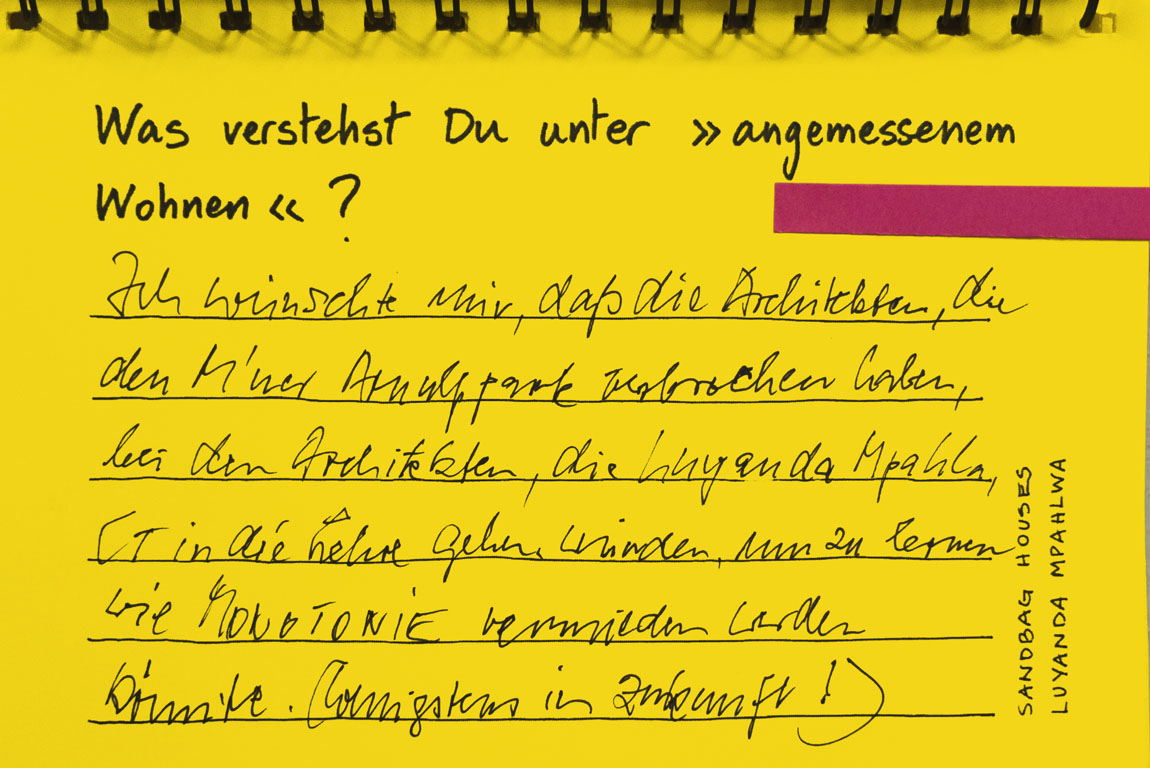 Was verstehst Du unter »angemessenem
Wohnen«?
Ich wünschte mir, daß die Architekten, die
den M'ner Arnulfpark verbrochen haben,
bei den Architekten, die Luyanda Mpahla,
CT in die Lehre gehen würden, um zu lernen
wie MONOTONIE vermieden werden
könnte. (Wenigstens in Zukunft!)
SANDBAG HOUSES
LUYANDA MPAHLWA